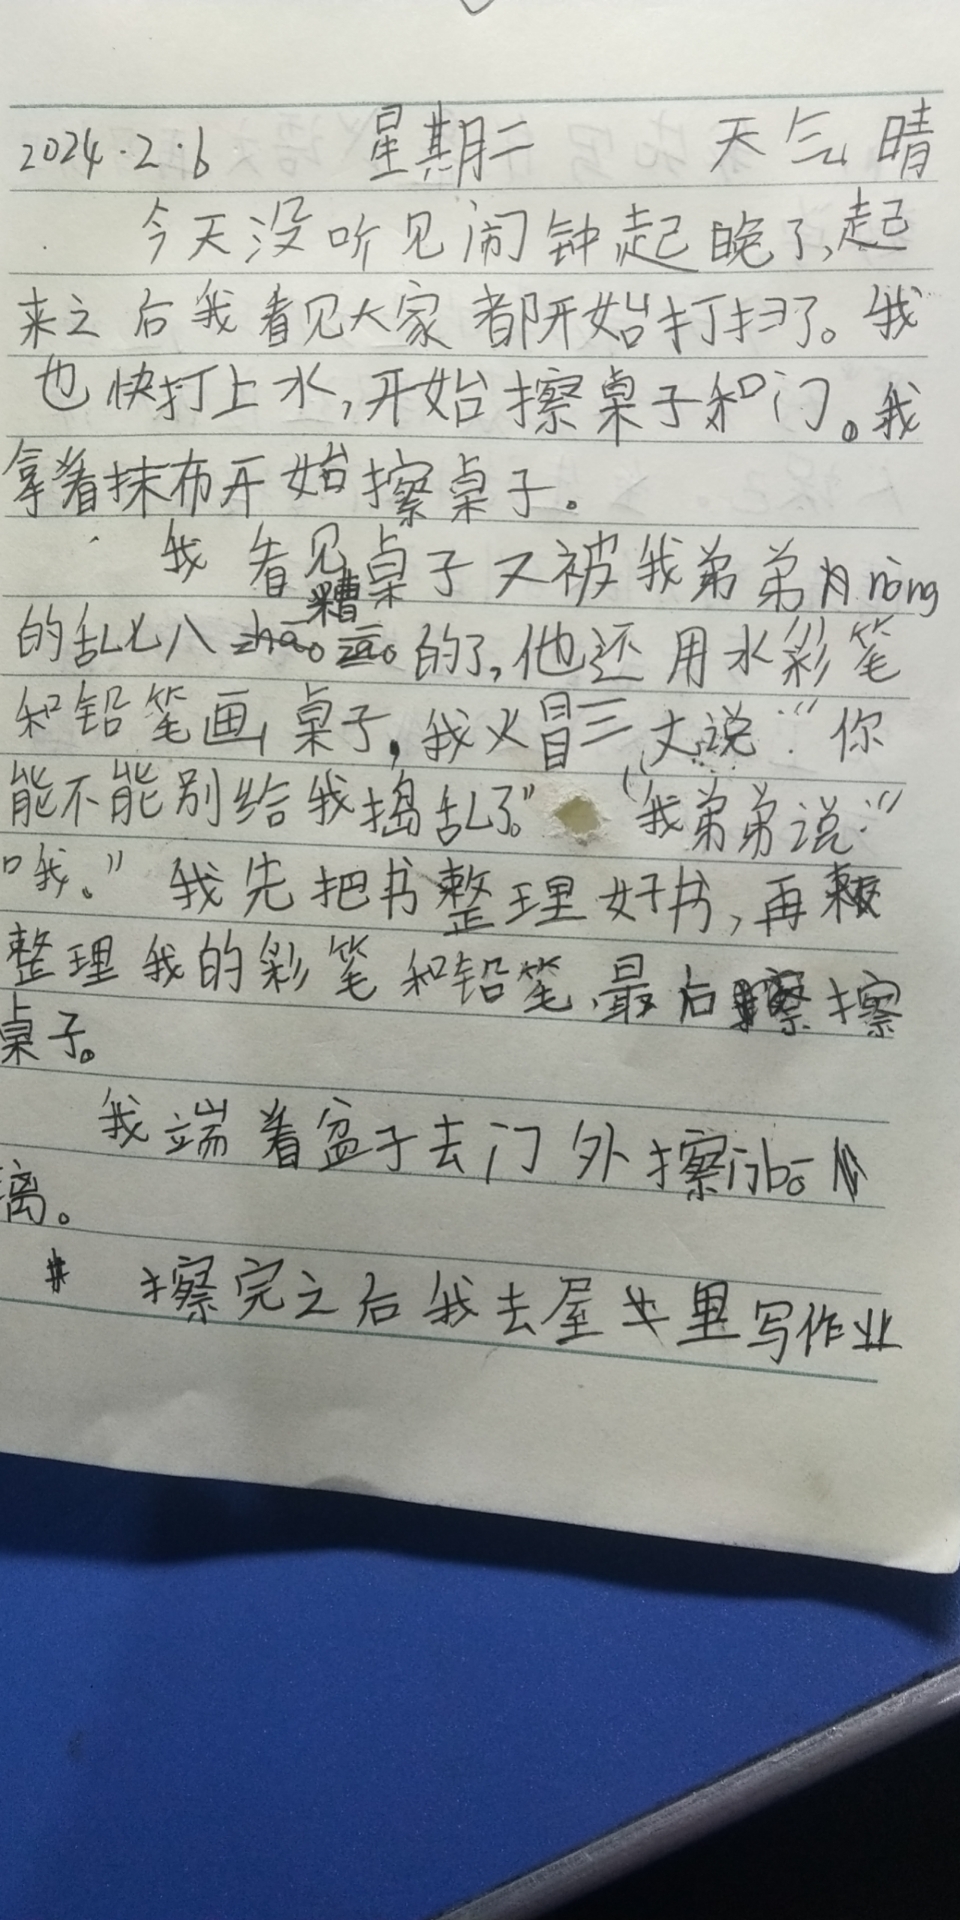 2024.2.6 星期二 天气晴
今天没听见闹钟,起晚了,起
来之后我看见大家都开始打扫了。我
也快打上水,开始擦桌子和门。我
拿着抹布开始擦桌子。
我看见桌子又被我弟弟 nòng
糟
的乱七八 的了,他还用水彩笔
和铅笔画桌子,我火冒三丈说:“你
能不能别给我捣乱了。”我弟弟说:“
“哦。”我先把书整理好书,再
整理我的彩笔和铅笔,最后 擦
桌子。
我端着盆子去门外擦门bō
离。
擦完之后我去屋 里写作业